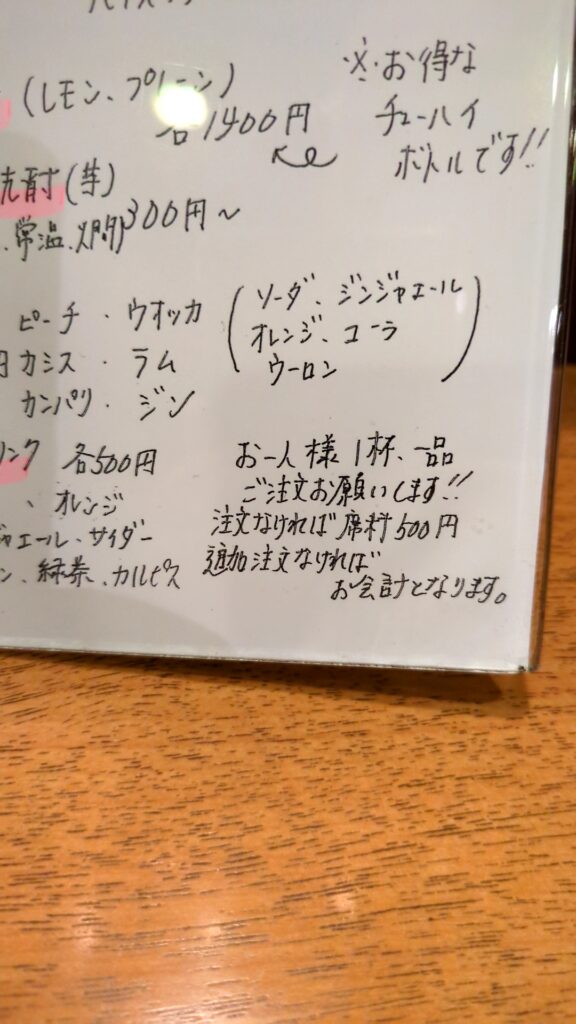 (レモン、プレーン)
各1400円
※お得な
チューハイ
ボトルです!!
焼酎(芋)
、常温、燗) 300円~
ピーチ・ウオッカ
円 カシス・ラム
カンパリ・ジン
(ソーダ、ジンジャエール
オレンジ、コーラ
ウーロン)
リンク 各500円
、オレンジ
ジャエール・サイダー
ン、緑茶、カルピス
お一人様1杯、一品
ご注文お願いします!!
注文なければ席料500円
追加注文なければ
お会計となります。